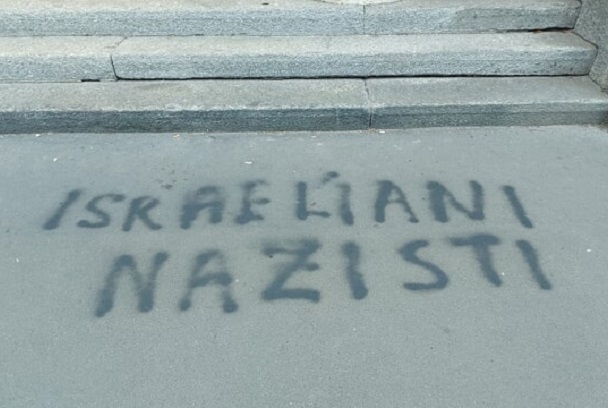 ISRAELIANI
NAZISTI